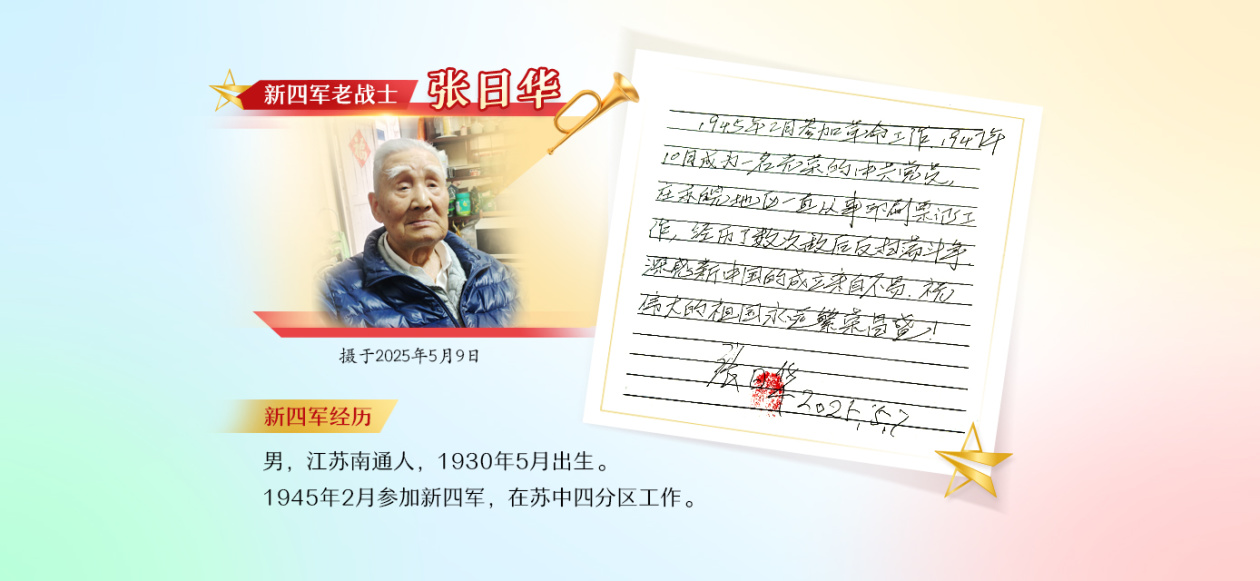 新四军老战士
张日华
摄于2025年5月9日
新四军经历
男，江苏南通人，1930年5月出生。
1945年2月参加新四军，在苏中四分区工作。
1945年2月参加革命工作，1947年
10月成为一名光荣的中共党员，
在苏皖地区一直从事印刷票证工
作，经历了数次敌后反扫荡斗争，
深感新中国的成立来自不易，祝
伟大的祖国永远繁荣昌盛！
张日华
2025.5.7